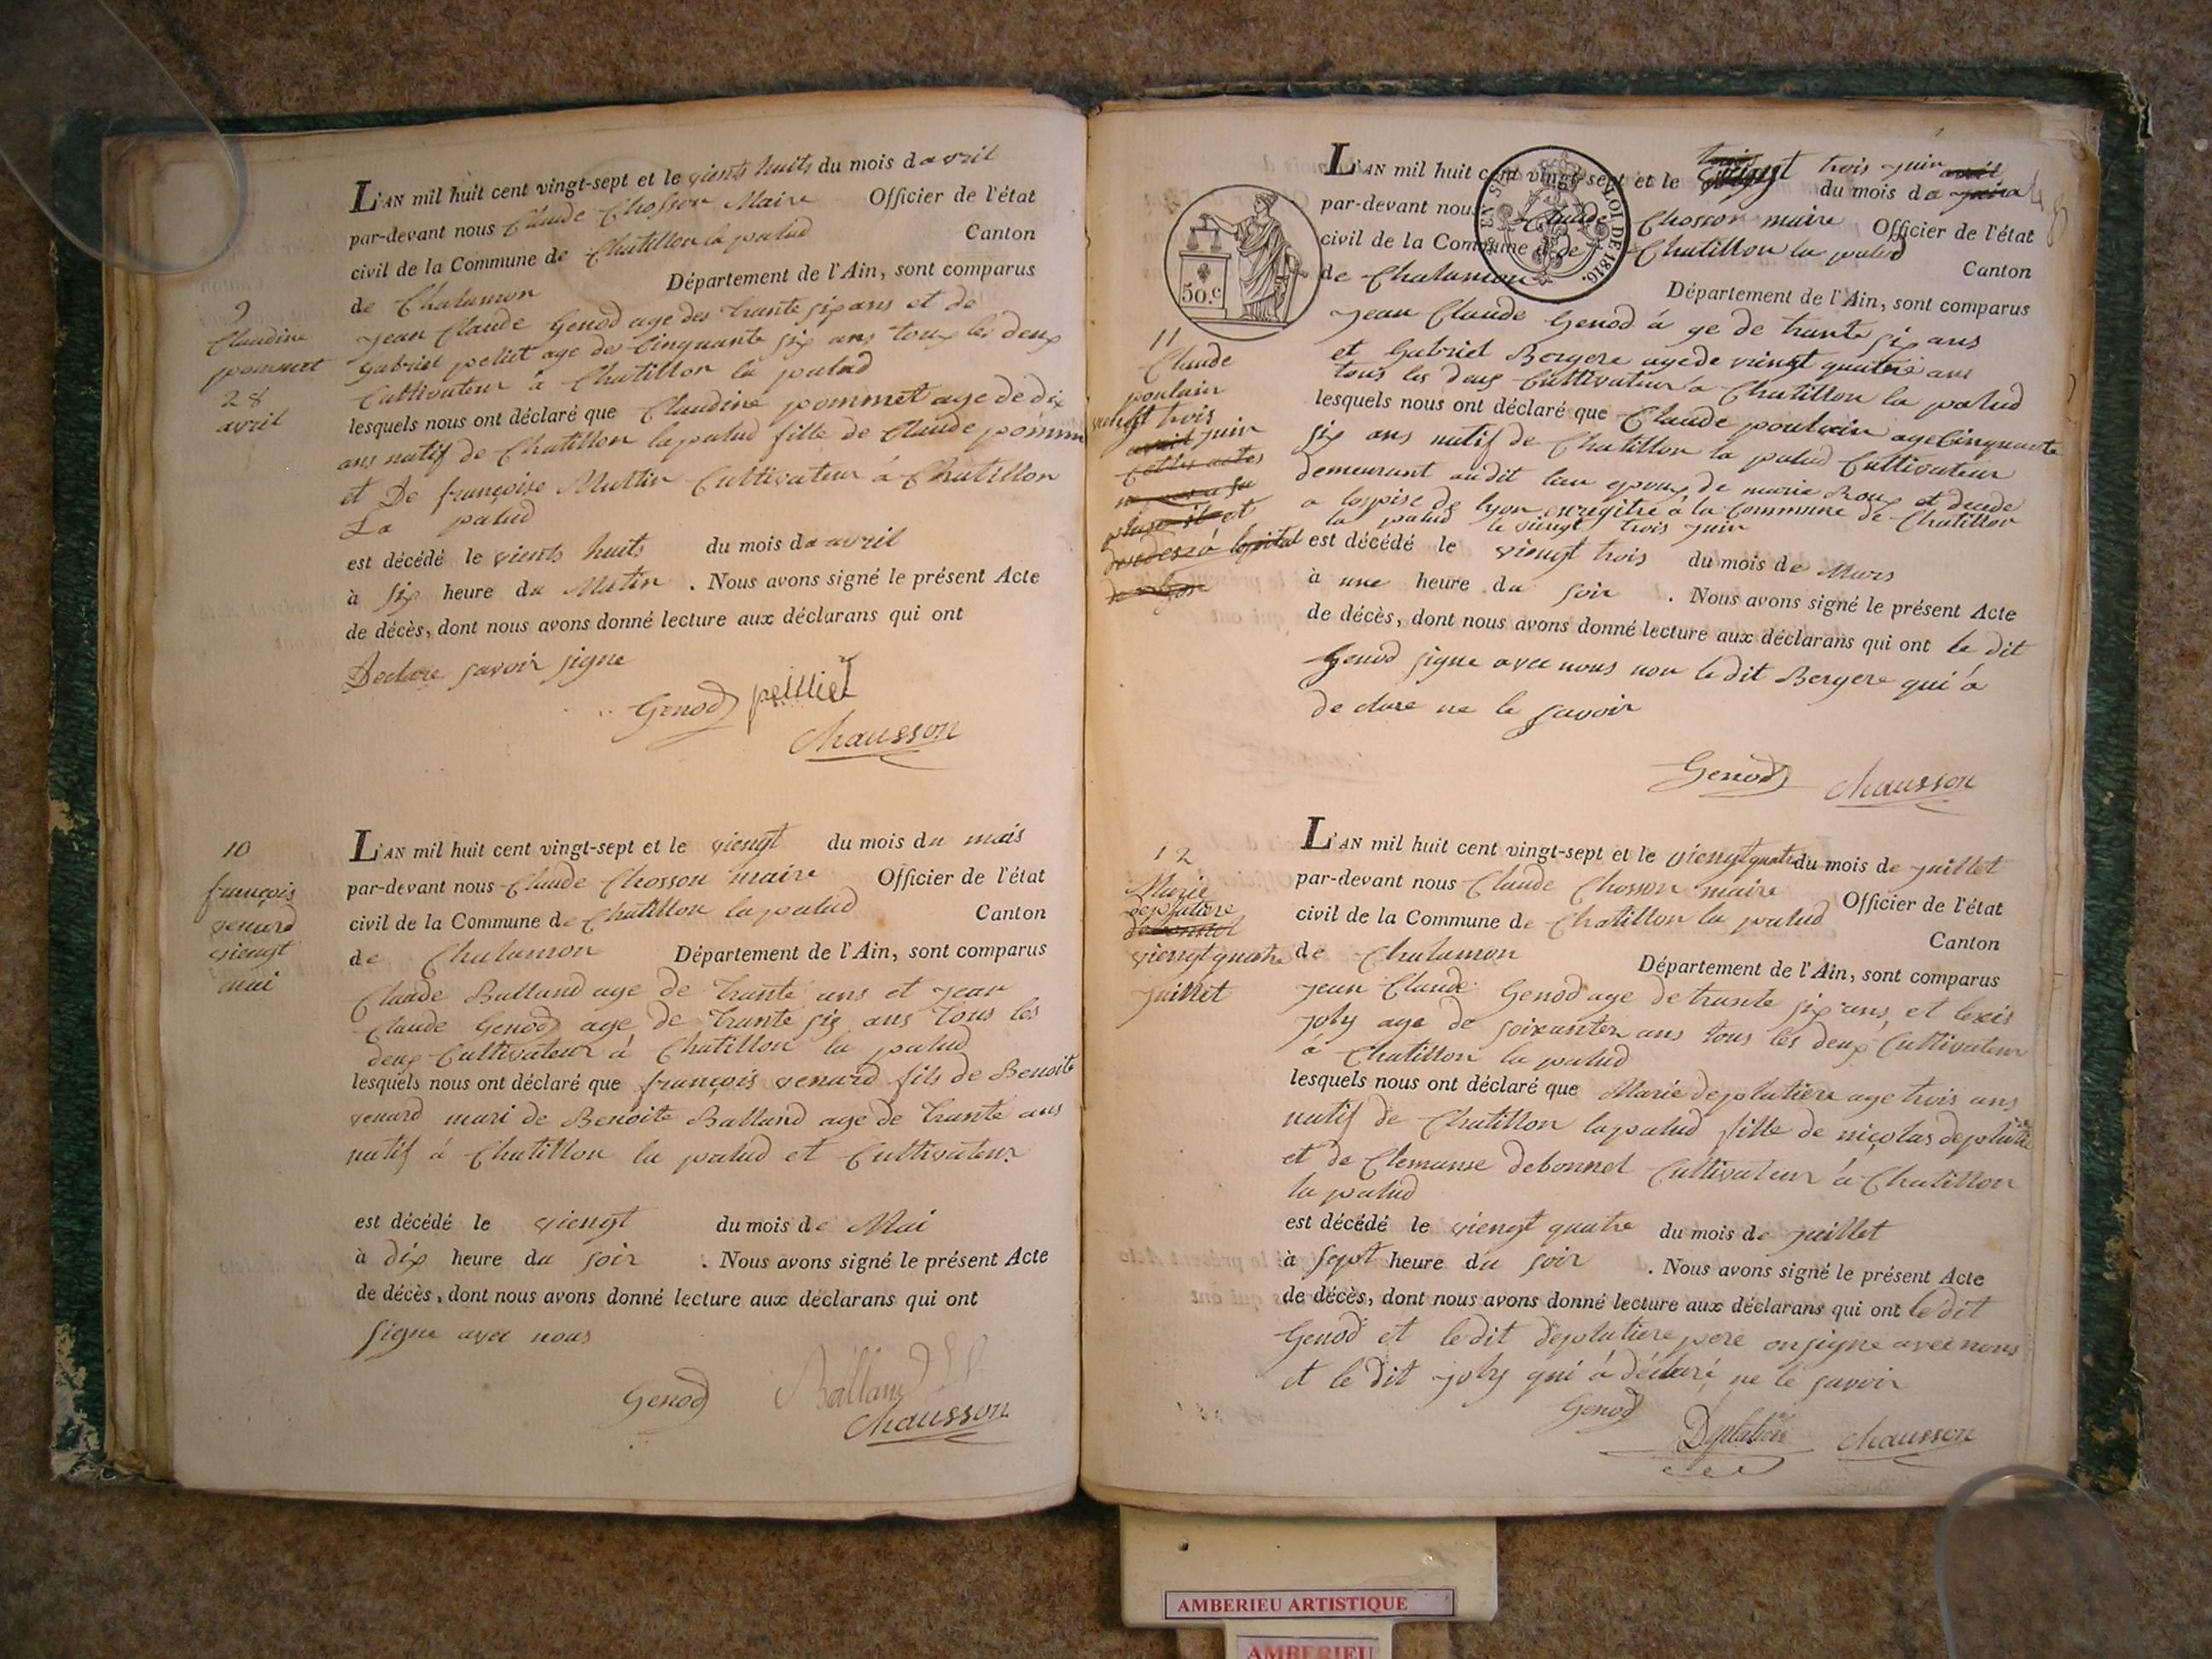 L'AN mil huit cent vingt-sept et le vients huits du mois d avril
par-devant nous Claude Chosson Maire Officier de l'état
civil de la Commune de Chatillon la palud Canton
de Chalamon Département de l'Ain, sont comparus
jean Claude Genod age des trante six ans et de
gabriel peliet age de Cinquante six ans tous les deux
Cultivateur à Chatillon la palud
lesquels nous ont déclaré que Claudine pommet age de dix
ans natif de Chatillon la palud fille de Claude pomm
et De françoise Muttin Cultivateur à Chatillon
La palud
est décédé le vients huits du mois d avril
à six heure du Matin . Nous avons signé le présent Acte
de décès, dont nous avons donné lecture aux déclarans qui ont
Declare savoir signe
Genod pelliet
Chausson
9
Claudine
pommet
28
avril
10
françois
venard
viengt
mai
L'AN mil huit cent vingt-sept et le viengt du mois du mais
par-devant nous Claude Chosson maire Officier de l'état
civil de la Commune de Chatillon la palud Canton
de Chalamon Département de l'Ain, sont comparus
Claude Balland age de trante ans et jean
Claude Genod age de trante six ans tous les
deux Cultivateur à Chatillon la palud
lesquels nous ont déclaré que françois venard fils de Benoite
venard mari de Benoite Balland age de trante ans
natif à Chatillon la palud et Cultivateur
est décédé le viengt du mois de Mai
à dix heure du soir . Nous avons signé le présent Acte
de décès, dont nous avons donné lecture aux déclarans qui ont
signe avec nous
Genod Balland
Chausson
L'AN mil huit cent vingt-sept et le trois juin
du mois d
par-devant nous Claude Chosson maire Officier de l'état
civil de la Commune de Chatillon la palud Canton
de Chalamon Département de l'Ain, sont comparus
LOI DE 1816.
50.c
jean Claude Genod à ge de trante six ans
et Gabriel Bergere age de viengt quatre ans
tous les deux Cultivateur à Chatillon la palud
lesquels nous ont déclaré que Claude poulain age Cinquante
six ans natif de Chatillon la palud Cultivateur
demeurant audit lieu epoux de marie Roux et decede
a lospise de lyon enregitre à la Commune de Chatillon
la palud le viengt trois juin
est décédé le viengt trois du mois de Mars
à une heure du soir . Nous avons signé le présent Acte
de décès, dont nous avons donné lecture aux déclarans qui ont le dit
Genod signe avec nous non le dit Bergere qui à
de clare ne le savoir
Genod Chausson
11
Claude
poulain
viengt trois
juin
12
Marie
deplatiere
viengt quatre
juillet
L'AN mil huit cent vingt-sept et le viengt quatre du mois de juillet
par-devant nous Claude Chosson maire Officier de l'état
civil de la Commune de Chatillon la palud Canton
de Chalamon Département de l'Ain, sont comparus
jean Claude Genod age de trante six ans, et lexis
joly age de soixanter ans tous les deux Cultivateur
à Chatillon la palud
lesquels nous ont déclaré que Marie deplatiere age trois ans
natif de Chatillon la palud fille de nicolas deplatiere
et de Clemanse debonnet Cultivateur à Chatillon
la palud
est décédé le viengt quatre du mois de juillet
à sept heure du soir . Nous avons signé le présent Acte
de décès, dont nous avons donné lecture aux déclarans qui ont le dit
Genod et le dit deplatiere pere on signe avec nous
et le dit joly qui à déclaré ne le savoir
Genod
Deplatiere Chausson
AMBERIEU ARTISTIQUE
AMBERIEU